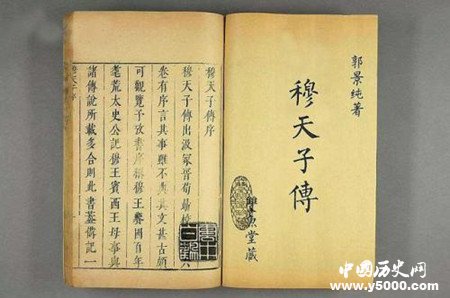 郭景純著
穆天子傳
堂藏
穆天子傳序
穆天子傳出汲冢晉荀勗六
卷有序言其事雖不典其文甚古頗
可觀覽予攷書序稱穆王饗國百年
耄荒太史公記穆王賓西王母事與
諸傳說所載多合則此書蓋備記一
中国历史网
www.y5000.com